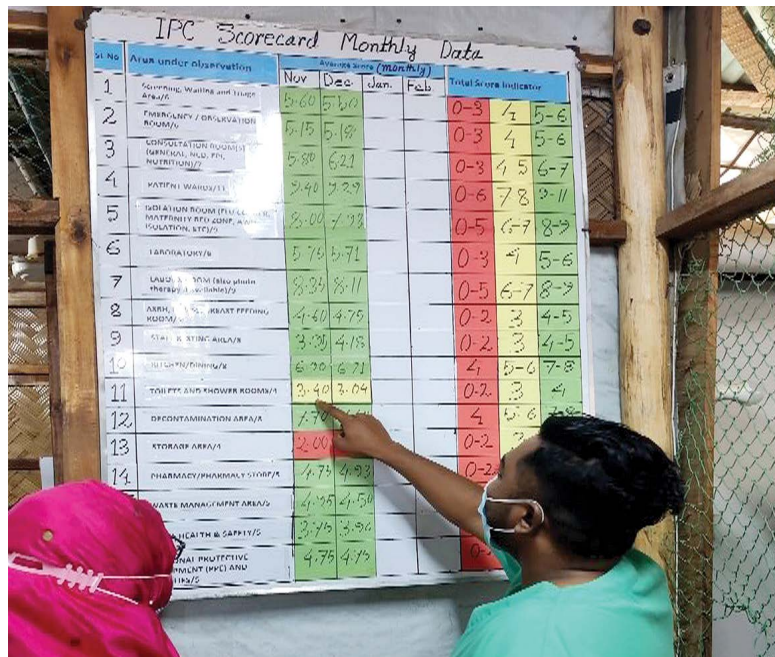 IPC Scorecard Monthly Data
Sl. No Area under observation Average Score (monthly) Total Score Indicator
Nov Dec Jan. Feb
1 Screening, Waiting and Triage Area/6 5.60 5.50 0-3 4 5-6
2 EMERGENCY / OBSERVATION ROOM/6 5.15 5.18 0-3 4 5-6
3 CONSULTATION ROOM(S) (GENERAL, NCD, EPI, NUTRITION)/7 5.80 6.21 0-3 4 5 6-7
4 PATIENT WARDS/11 9.40 9.29 0-6 7 8 9-11
5 ISOLATION ROOM MATERNITY RED ZONE, ISOLATION, ETC)/9 8.00 7.93 0-5 6-7 8-9
6 LABORATORY/6 5.75 5.71 0-3 4 5-6
7 LABOUR ROOM (also photo therapy if available)/9 8.35 8.11 0-5 6-7 8-9
8 BREAST FEEDING ROOM/ 4.60 4.75 0-2 3 4-5
9 AREA/ 4.18 0-2 3 4-5
10 KITCHEN/DINING/8 6.30 4 5-6 7-8
11 TOILETS AND SHOWER ROOMS/4 3.40 3.04 0-2 3 4
12 DECONTAMINATION AREA/8 4 5-6 7-8
13 STORAGE AREA/4 2.00 0-2
14 PHARMACY/PHARMACY STORE/5 4.75 4.93 0-2
WASTE MANAGEMENT AREA/5 4.95 4.50
HEALTH & SAFETY/5 3.75 3.96
PROTECTIVE (PPE) AND 4.75 4.75